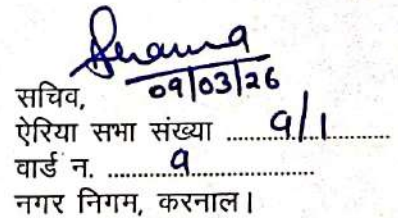 Sharma
09/03/26
सचिव,
ऐरिया सभा संख्या ....9/1....
वार्ड न. ....9....
नगर निगम, करनाल।